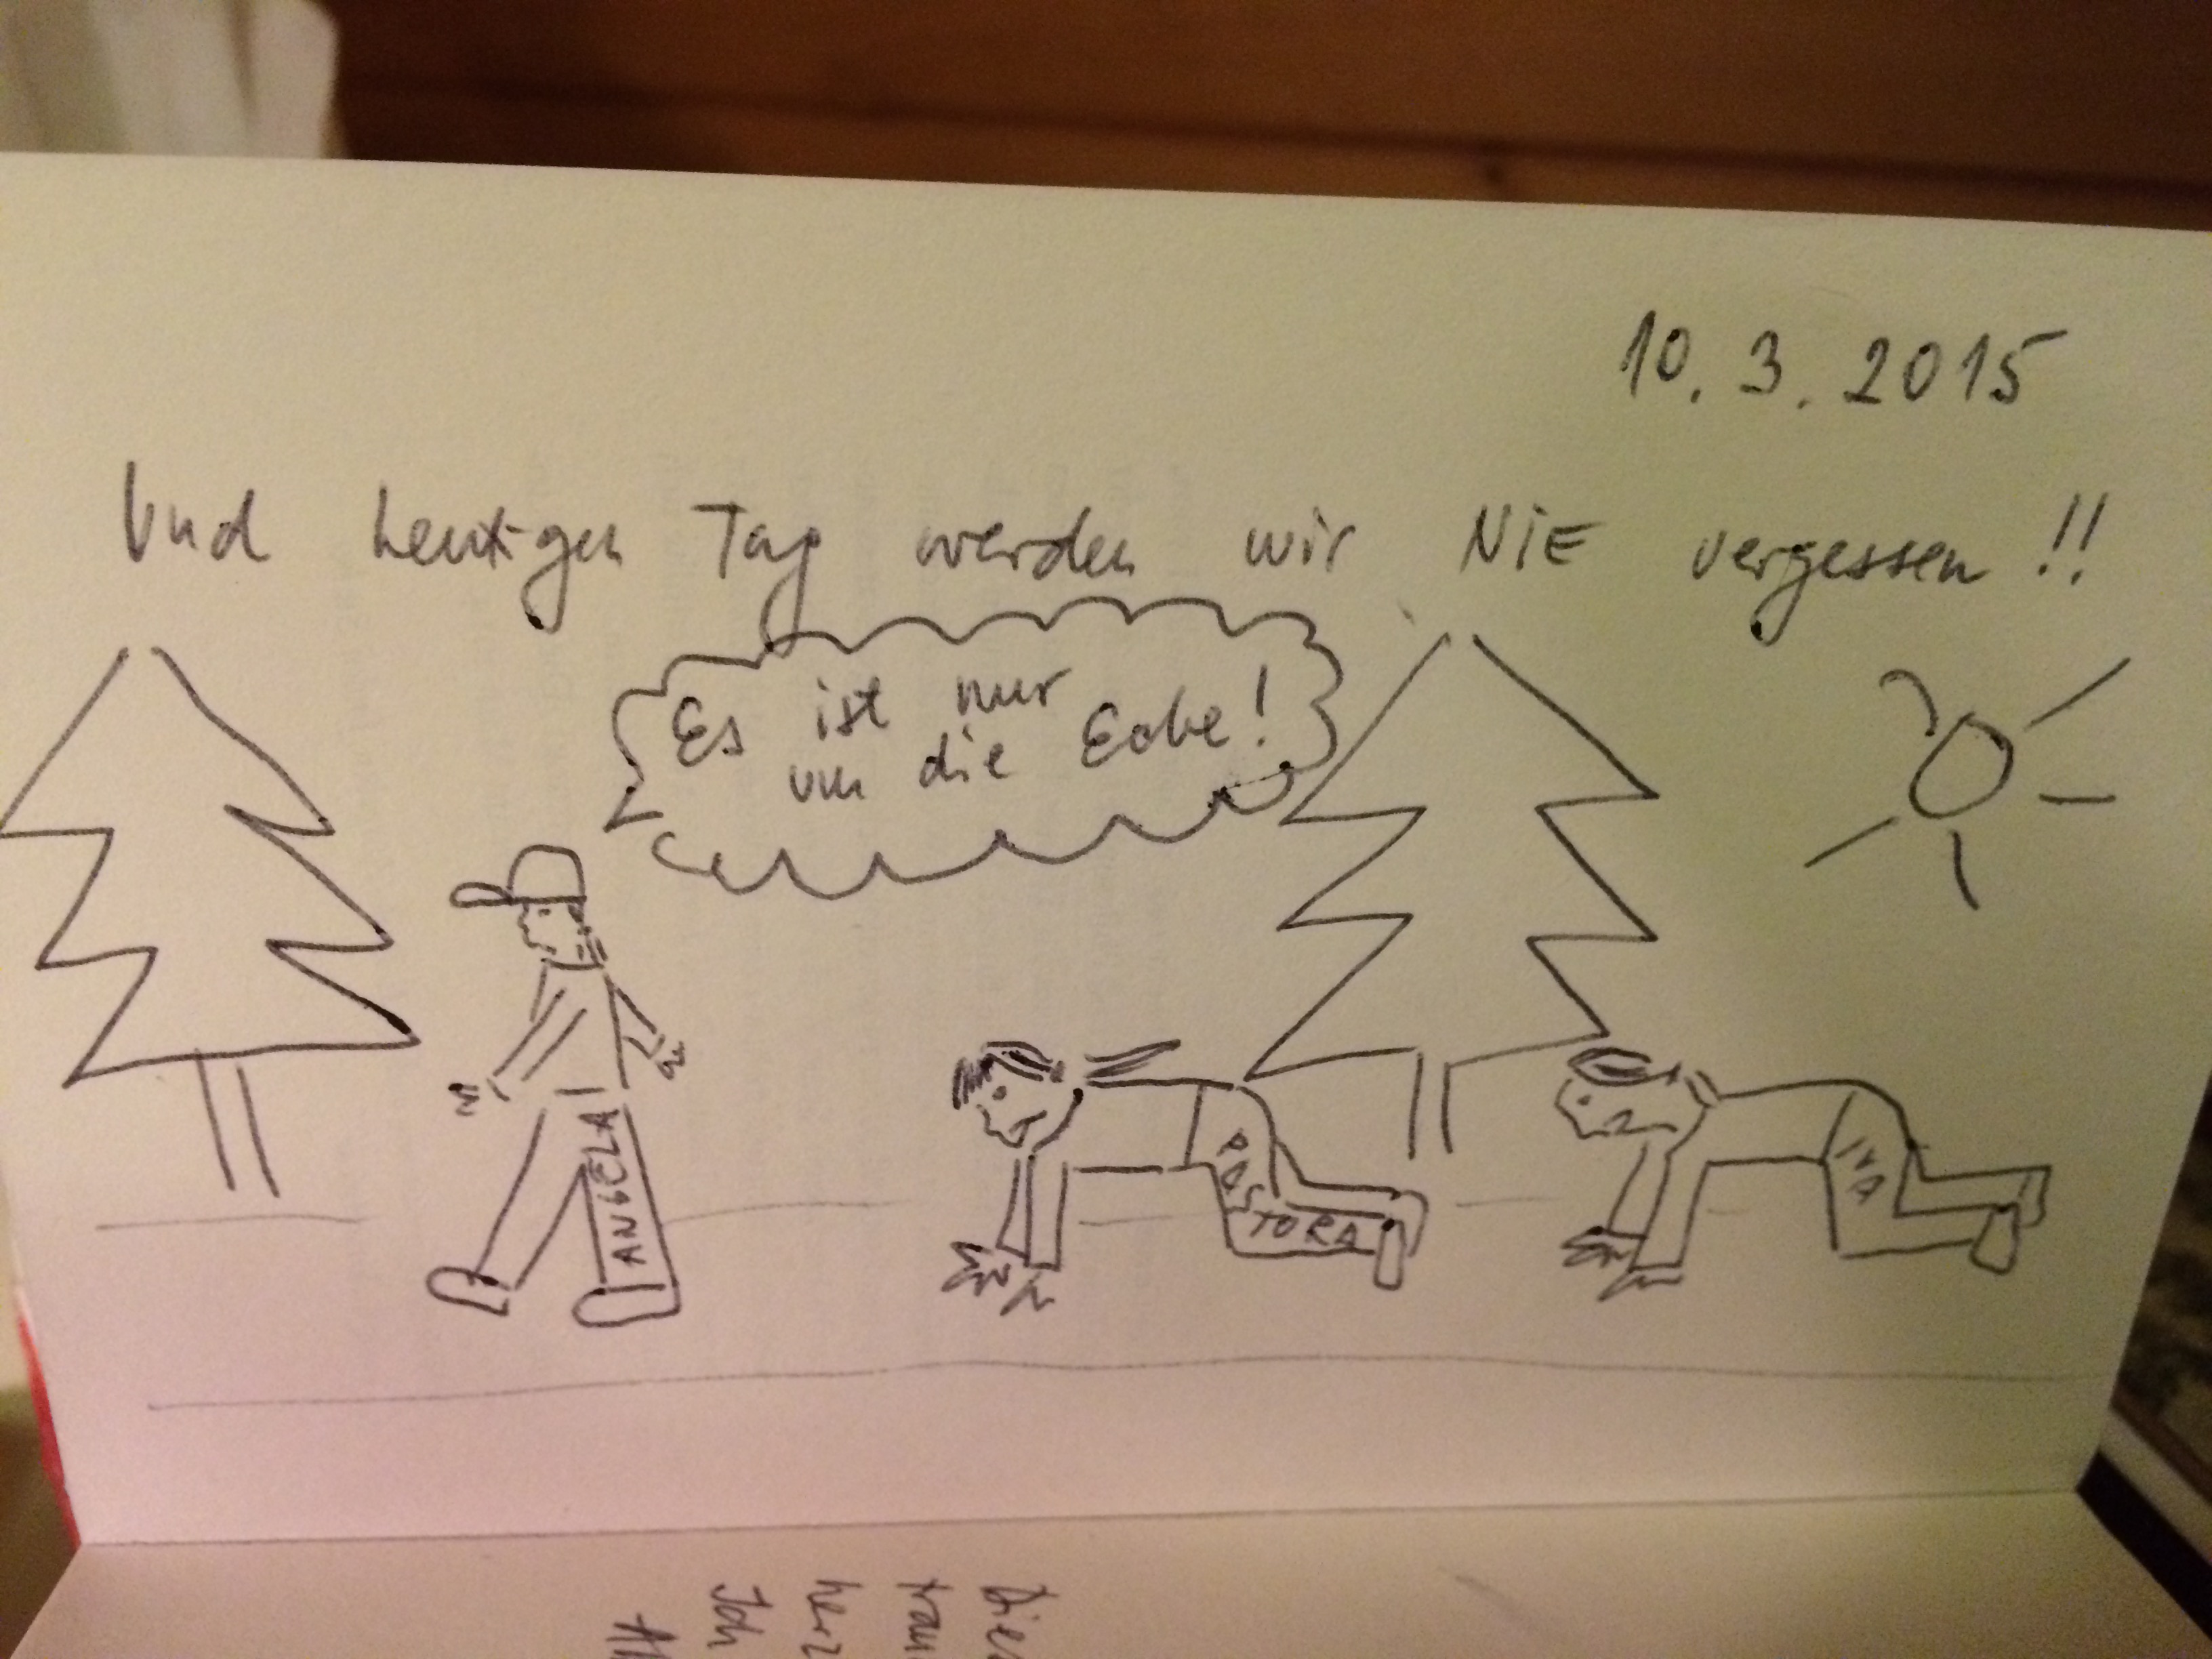 10. 3. 2015
Und heutigen Tag werden wir NiE vergessen!!
Es ist nur
um die Ecke!
ANGELA
PAS
TORA
INA
herz
Ich